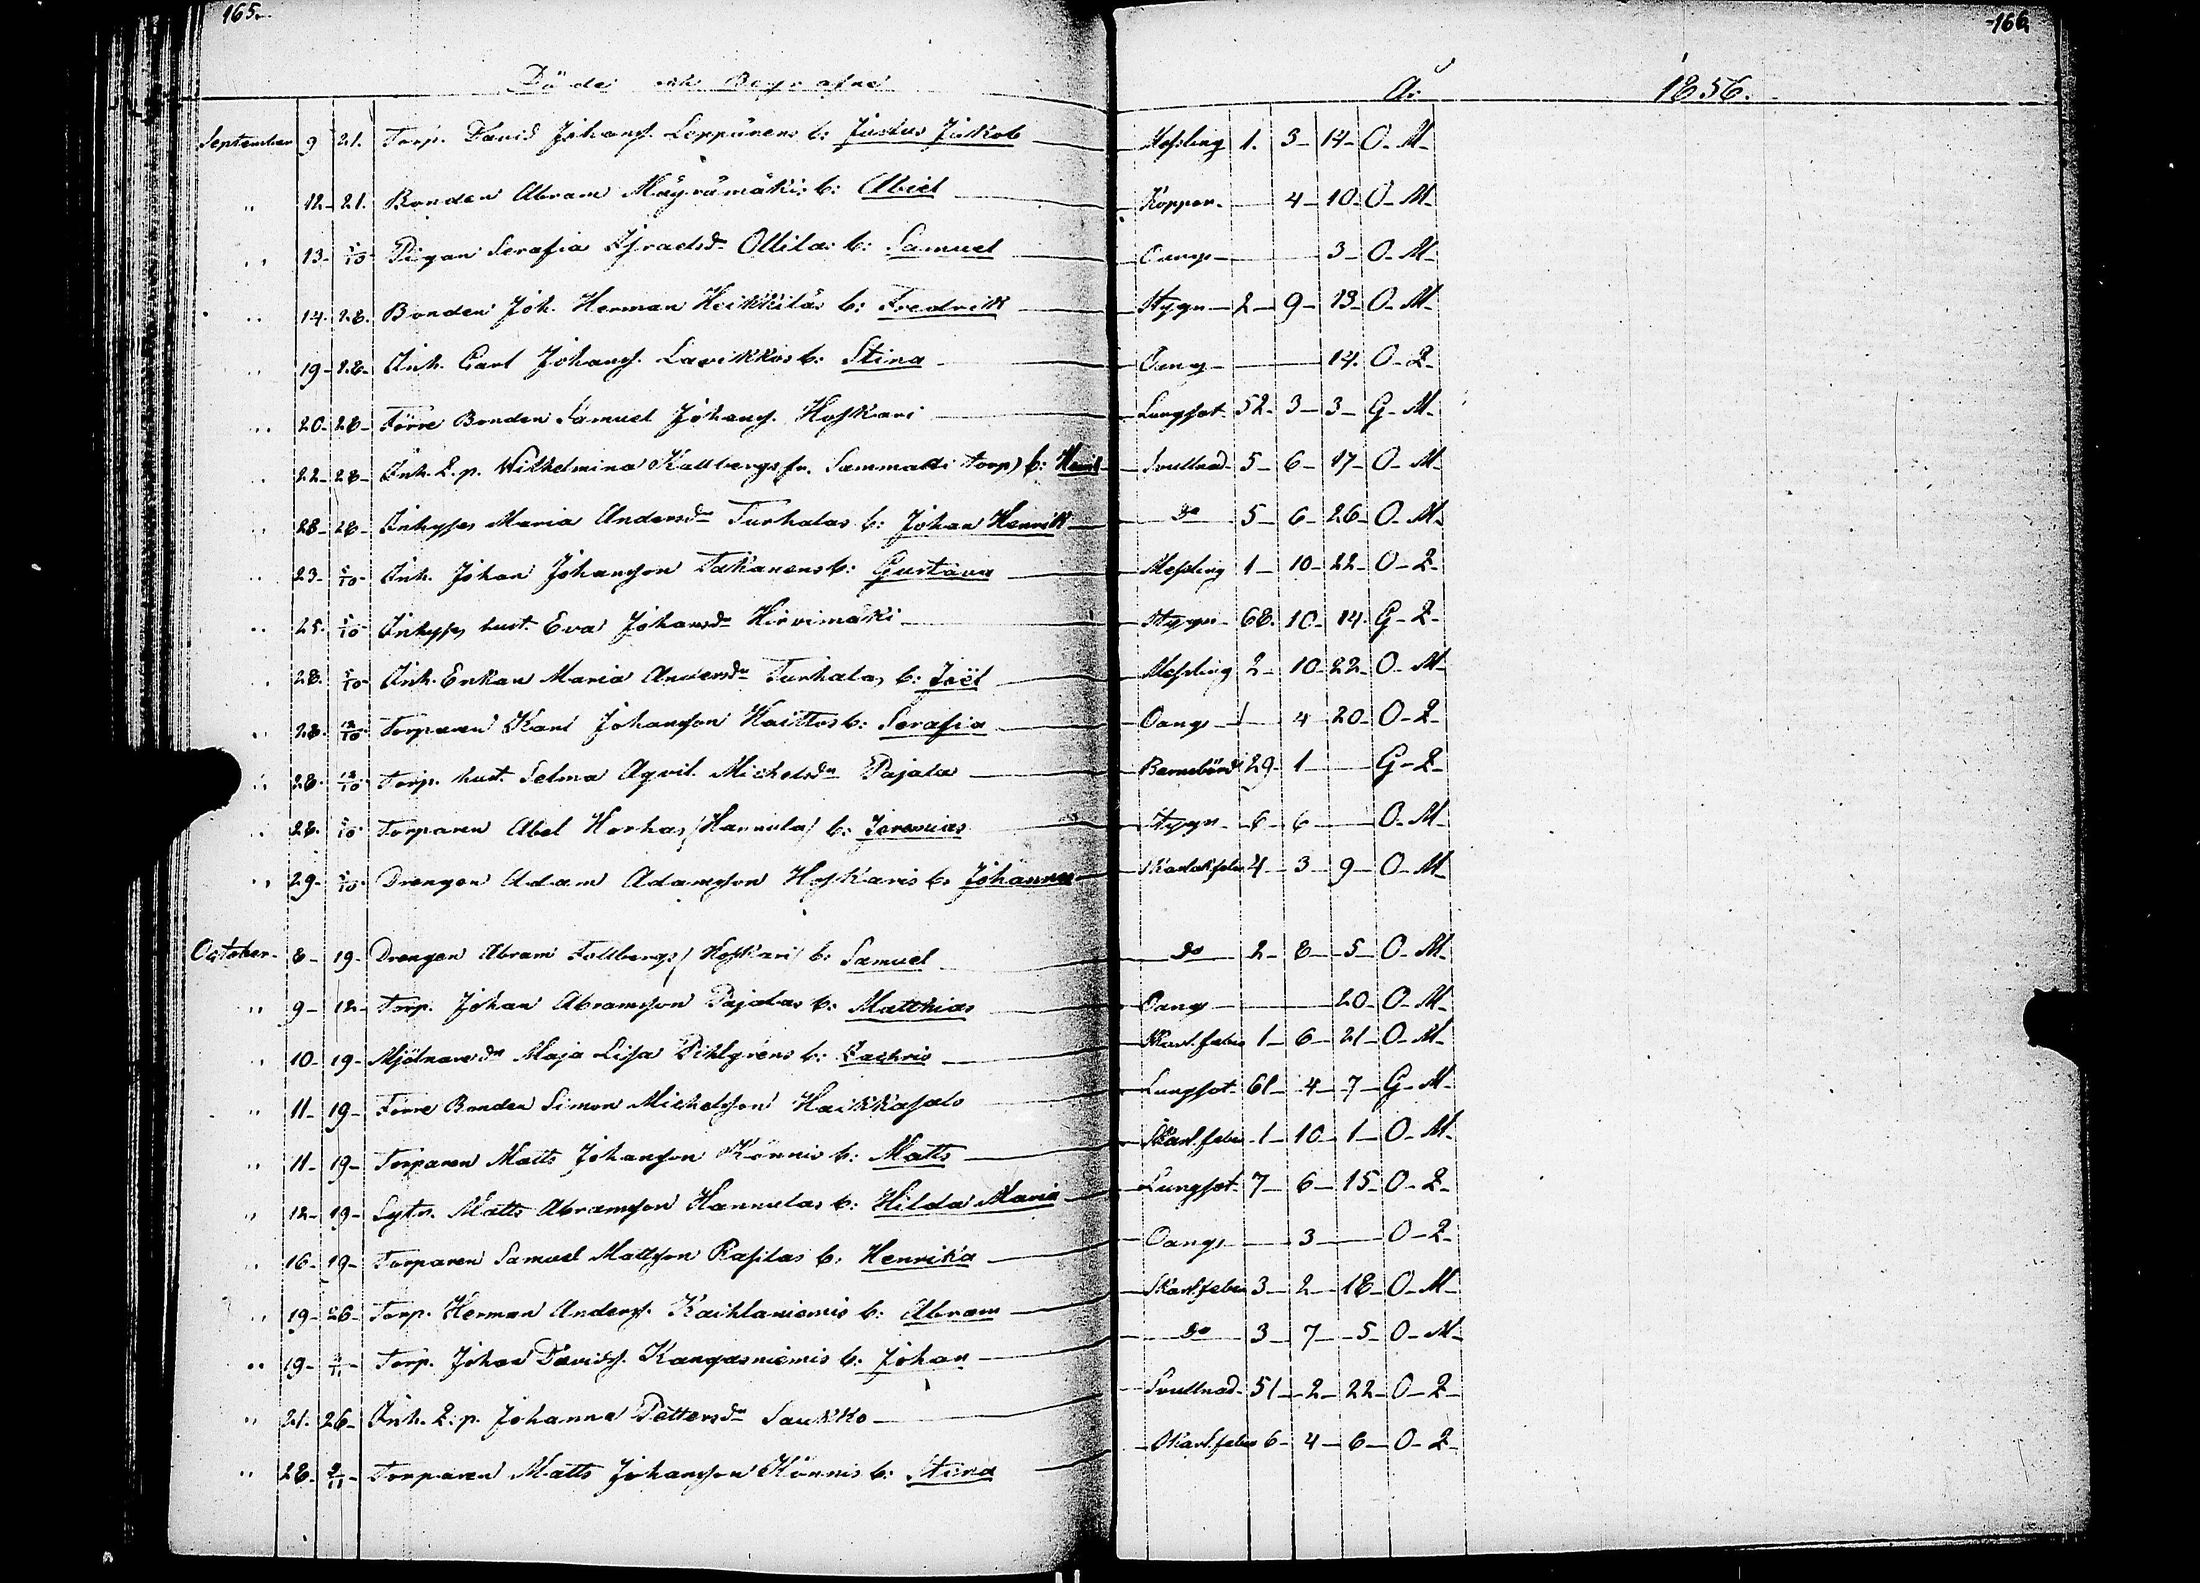 165.
166.
Döde och Begrafne År 1856.
September 9 21. Torp. David Johanss. Leppänens b: Justus Jakob Messling 1. 3 14 O. M.
" 12 21. Bonden Abram Mäyrämäkis b: Abiel Koppor 4 10 O. M.
" 13 5/10 Pigan Serafia Israelsdr Ollilas b: Samuel Oang. 3 O. M.
" 14. 28. Bonden Joh. Herman Heikkiläs b: Fredrik Stygn 2 9 13 O. M.
" 19 28 Inh. Carl Johanss. Lavikkos b: Stina Oang 14. O. Q.
" 20 28 Förre Bonden Samuel Johanss. Hosskari Lungsot 52 3 3 G. M.
" 22 28 Inh. E. p. Wilhelmina Kallbergs fr. Sammatti torp) b: Svullnad 5 6 17 O. M.
" 28 28 Inhyses Maria Andersdr Turhalas b: Johan Henrik do 5 6 26 O. M.
" 23 5/10 Inh. Johan Johansson Takanens b: Gustava Messling 1 10 22 O. Q.
" 25. 5/10 Inhyses hust. Eva Johansdr Hirvimäki Stygn 68. 10 14 G. Q.
" 28. 5/10 Inh. Enkan Maria Andersdr Turhalas b: Joël Messling 2 10 22 O. M.
" 28. 12/10 Torparen Karl Johansson Kaittos b: Serafia Oang 4 20 O. Q.
" 28. 12/10 Torp. hust. Selma Aqvil. Michelsdr Pajala Barnsbörd 29 1 G. Q.
" 28. 5/10 Torparen Abel Horhas /Hannula/ b: Jeremias Stygn 6 6 O. M.
" 29. 5/10 Drengen Adam Adamsson Hosskaris b: Johannes Skarlak feber 4 3 9 O. M.
October 8 19 Drengen Abram Follbergs /Hosskari/ b: Samuel do 2 8 5 O. M.
" 9 12 Torp. Johan Abramsson Pajalas b: Matthias Oang 20 O. M.
" 10 19 Mjölnaredr Maja Lisa Pihlgrens b: Zachris Skarl. feber 1 6 21 O. M.
" 11 19 Förre Bonden Simon Michelsson Haikkasalo Lungsot 61 4 7 G. M.
" 11 19 Torparen Matts Johansson Könnis b: Matts Skarl. feber 1 10 1 O. M.
" 12 19 Sytn. Matts Abramsson Hannulas b: Hilda Maria Lungsot 7 6 15 O. Q.
" 16 19 Torparen Samuel Mattsson Rasilas b: Henrika Oang. 3 O. Q.
" 19 26 Torp. Herman Anderss. Kaihlaniemis b: Abram Skarl. feber 3 2 18 O. M.
" 19 2/11 Torp. Johan Davidss. Kangasniemis b: Johan do 3 7 5 O. M.
" 21. 26 Inh. E. p. Johanna Pettersdr Saukko Svullnad 51 2 22 O. Q.
" 28. 2/11 Torparen Matts Johansson Könnis b: Stina Skarl. feber 6 4 6 O. Q.